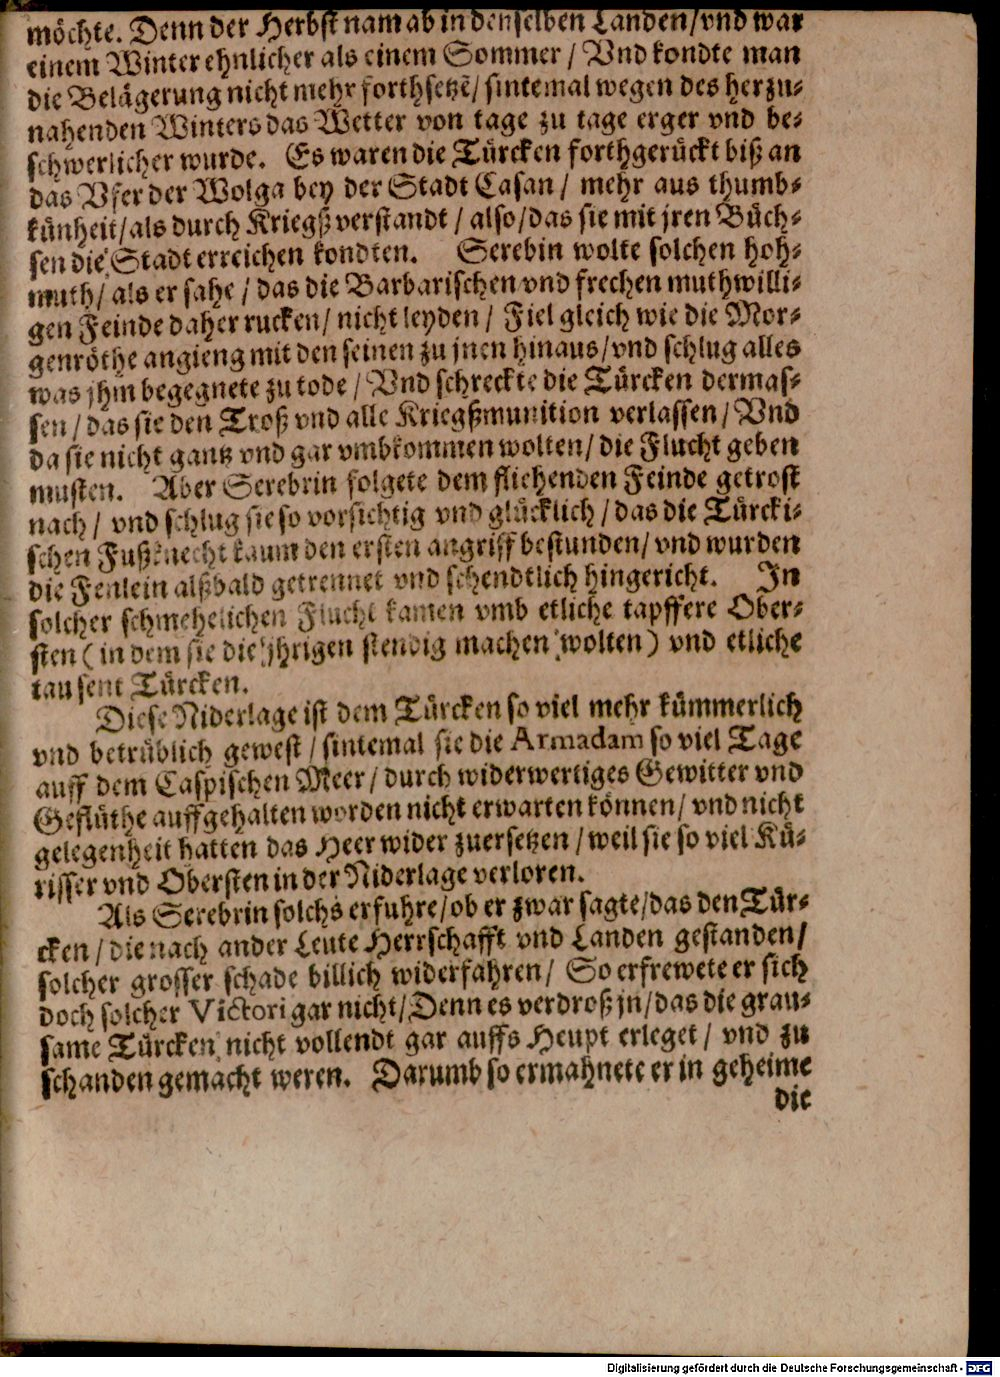 möchte. Denn der Herbst nam ab in denselben Landen/vnd war
einem Winter ehnlicher als einem Sommer / Vnd kondte man
die Belägerung nicht mehr forthsetzē/ sintemal wegen des herzu-
nahenden Winters das Wetter von tage zu tage erger vnd be-
schwerlicher wurde. Es waren die Türcken forthgerückt biß an
das Vfer der Wolga bey der Stadt Casan / mehr aus thumb-
künheit/als durch Kriegß verstandt / also/das sie mit jren Büch-
sen die Stadt erreichen kondten. Serebin wolte solchen hoh-
muth/ als er sahe / das die Barbarischen vnd frechen muthwilli-
gen Feinde daher rucken/ nicht leyden / Fiel gleich wie die Mor-
genröthe angieng mit den seinen zu jnen hinaus/vnd schlug alles
was jhm begegnete zu tode / Vnd schreckte die Türcken dermas-
sen / das sie den Troß vnd alle Kriegßmunition verlassen / Vnd
da sie nicht gantz vnd gar vmbkommen wolten/ die Flucht geben
musten. Aber Serebrin folgete dem fliehenden Feinde getrost
nach / vnd schlug sie so vorsichtig vnd glücklich / das die Türcki-
schen Fußknecht kaum den ersten angriff bestunden/ vnd wurden
die Fenlein alßbald getrennet vnd schendtlich hingericht. In
solcher schmehelichen Flucht kamen vmb etliche tapffere Ober-
sten (in dem sie die jhrigen stendig machen wolten) vnd etliche
tausent Türcken.
Diese Niderlage ist dem Türcken so viel mehr kümmerlich
vnd betrüblich gewest / sintemal sie die Armadam so viel Tage
auff dem Caspischen Meer / durch widerwertiges Gewitter vnd
Geflüthe auffgehalten worden nicht erwarten können/ vnd nicht
gelegenheit hatten das Heer wider zuersetzen / weil sie so viel Kü-
risser vnd Obersten in der Niderlage verloren.
Als Serebrin solchs erfuhre/ob er zwar sagte/das den Tür-
cken / die nach ander Leute Herrschafft vnd Landen gestanden/
solcher grosser schade billich widerfahren / So erfrewete er sich
doch solcher Victori gar nicht/Denn es verdroß jn/das die grau-
same Türcken nicht vollendt gar auffs Heupt erleget / vnd zu
schanden gemacht weren. Darumb so ermahnete er in geheime
die
Digitalisierung gefördert durch die Deutsche Forschungsgemeinschaft - DFG